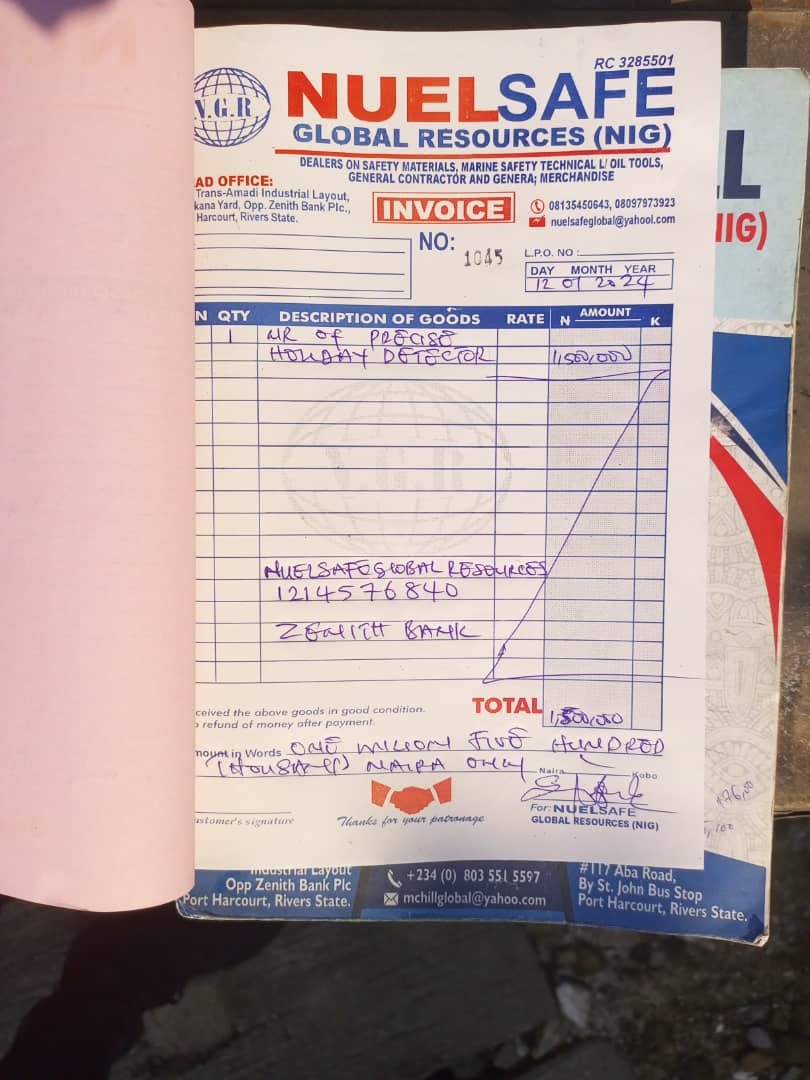 RC 3285501
N.G.R
NUELSAFE
GLOBAL RESOURCES (NIG)
DEALERS ON SAFETY MATERIALS, MARINE SAFETY TECHNICAL L/ OIL TOOLS,
GENERAL CONTRACTOR AND GENERA; MERCHANDISE
AD OFFICE:
Trans-Amadi Industrial Layout,
kana Yard, Opp. Zenith Bank Plc.,
Harcourt, Rivers State.
INVOICE
08135450643, 08097973923
nuelsafeglobal@yahool.com
NO: 1045
L.P.O. NO :
DAY MONTH YEAR
12 01 2024
N QTY DESCRIPTION OF GOODS RATE AMOUNT
N K
1 NR OF PRECISE
HOLIDAY DETECTOR 1,500,000
V.G.R
NUELSAFEGLOBAL RESOURCES
1214576840
ZENITH BANK
ceived the above goods in good condition.
refund of money after payment.
TOTAL 1,500,000
mount in Words ONE MILLION FIVE HUNDRED
THOUSAND NAIRA ONLY Naira Kobo
ustomer's signature
Thanks for your patronage
For: NUELSAFE
GLOBAL RESOURCES (NIG)
L
IIG)
Industrial Layout
Opp Zenith Bank Plc
Port Harcourt, Rivers State.
+234 (0) 803 551 5597
mchillglobal@yahoo.com
#117 Aba Road,
By St. John Bus Stop
Port Harcourt, Rivers State.